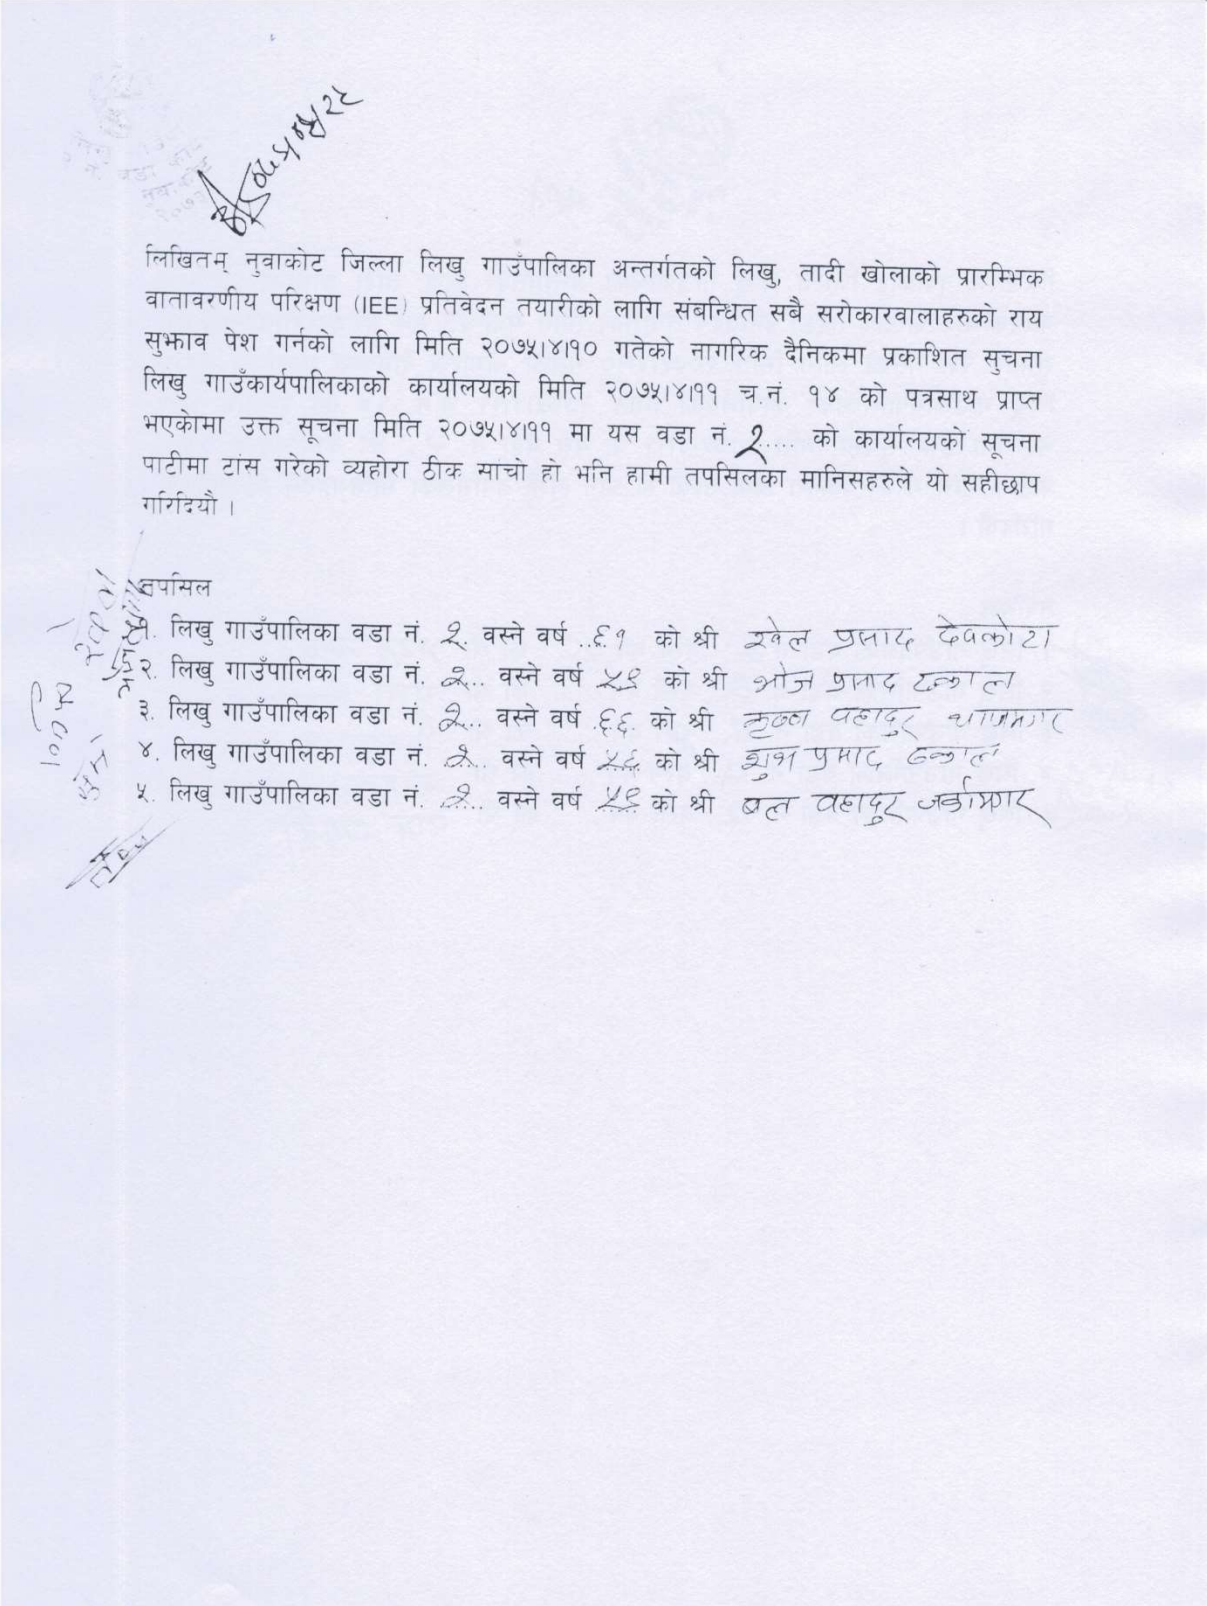 लिखितम् नुवाकोट जिल्ला लिखु गाउँपालिका अन्तर्गतको लिखु, तादी खोलाको प्रारम्भिक
वातावरणीय परिक्षण (IEE) प्रतिवेदन तयारीको लागि संबन्धित सबै सरोकारवालाहरुको राय
सुझाव पेश गर्नको लागि मिति २०७५।४।१० गतेको नागरिक दैनिकमा प्रकाशित सुचना
लिखु गाउँकार्यपालिकाको कार्यालयको मिति २०७५।४।११ च.नं. १४ को पत्रसाथ प्राप्त
भएकोमा उक्त सूचना मिति २०७५।४।११ मा यस वडा नं. २..... को कार्यालयको सूचना
पाटीमा टांस गरेको व्यहोरा ठीक साचो हो भनि हामी तपसिलका मानिसहरुले यो सहीछाप
गरिदियौ ।
तपसिल
१. लिखु गाउँपालिका वडा नं. २. वस्ने वर्ष ..६१ को श्री प्रसाद देवकोटा
२. लिखु गाउँपालिका वडा नं. २.. वस्ने वर्ष ५९ को श्री भोज प्रसाद ढकाल
३. लिखु गाउँपालिका वडा नं. २.. वस्ने वर्ष .६६. को श्री कृष्ण वहादुर थापामगर
४. लिखु गाउँपालिका वडा नं. २.. वस्ने वर्ष ५६ को श्री शुभ प्रसाद ढकाल
५. लिखु गाउँपालिका वडा नं. २... वस्ने वर्ष ५९ को श्री बल वहादुर